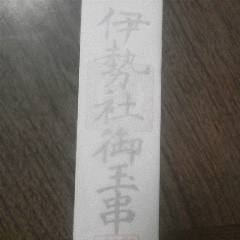 伊勢社御玉串